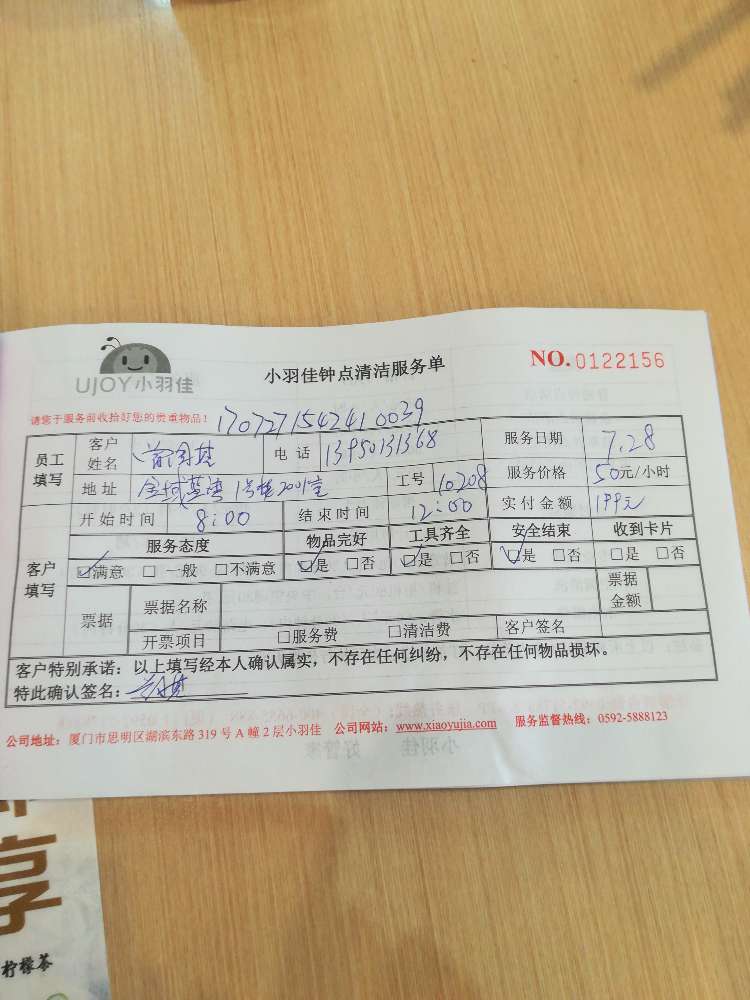 UJOY小羽佳
小羽佳钟点清洁服务单
NO.0122156
请您于服务前收拾好您的贵重物品!
170727154241 0039
员工填写 客户姓名 电话 13950131368 服务日期 7.28
地址 金域蓝湾 1号楼2001室 工号 10208 服务价格 50元/小时
开始时间 8:00 结束时间 12:00 实付金额 199元
客户填写 服务态度 物品完好 工具齐全 安全结束 收到卡片
☑满意 □ 一般 □不满意 ☑是 □否 ☑是 □否 ☑是 □否 □是 □否
票据 票据名称 票据金额
开票项目 □服务费 □清洁费 客户签名
客户特别承诺:以上填写经本人确认属实,不存在任何纠纷,不存在任何物品损坏。
特此确认签名:
公司地址:厦门市思明区湖滨东路 319 号 A 幢 2 层小羽佳 公司网站:www.xiaoyujia.com 服务监督热线:0592-5888123
享
柠檬茶